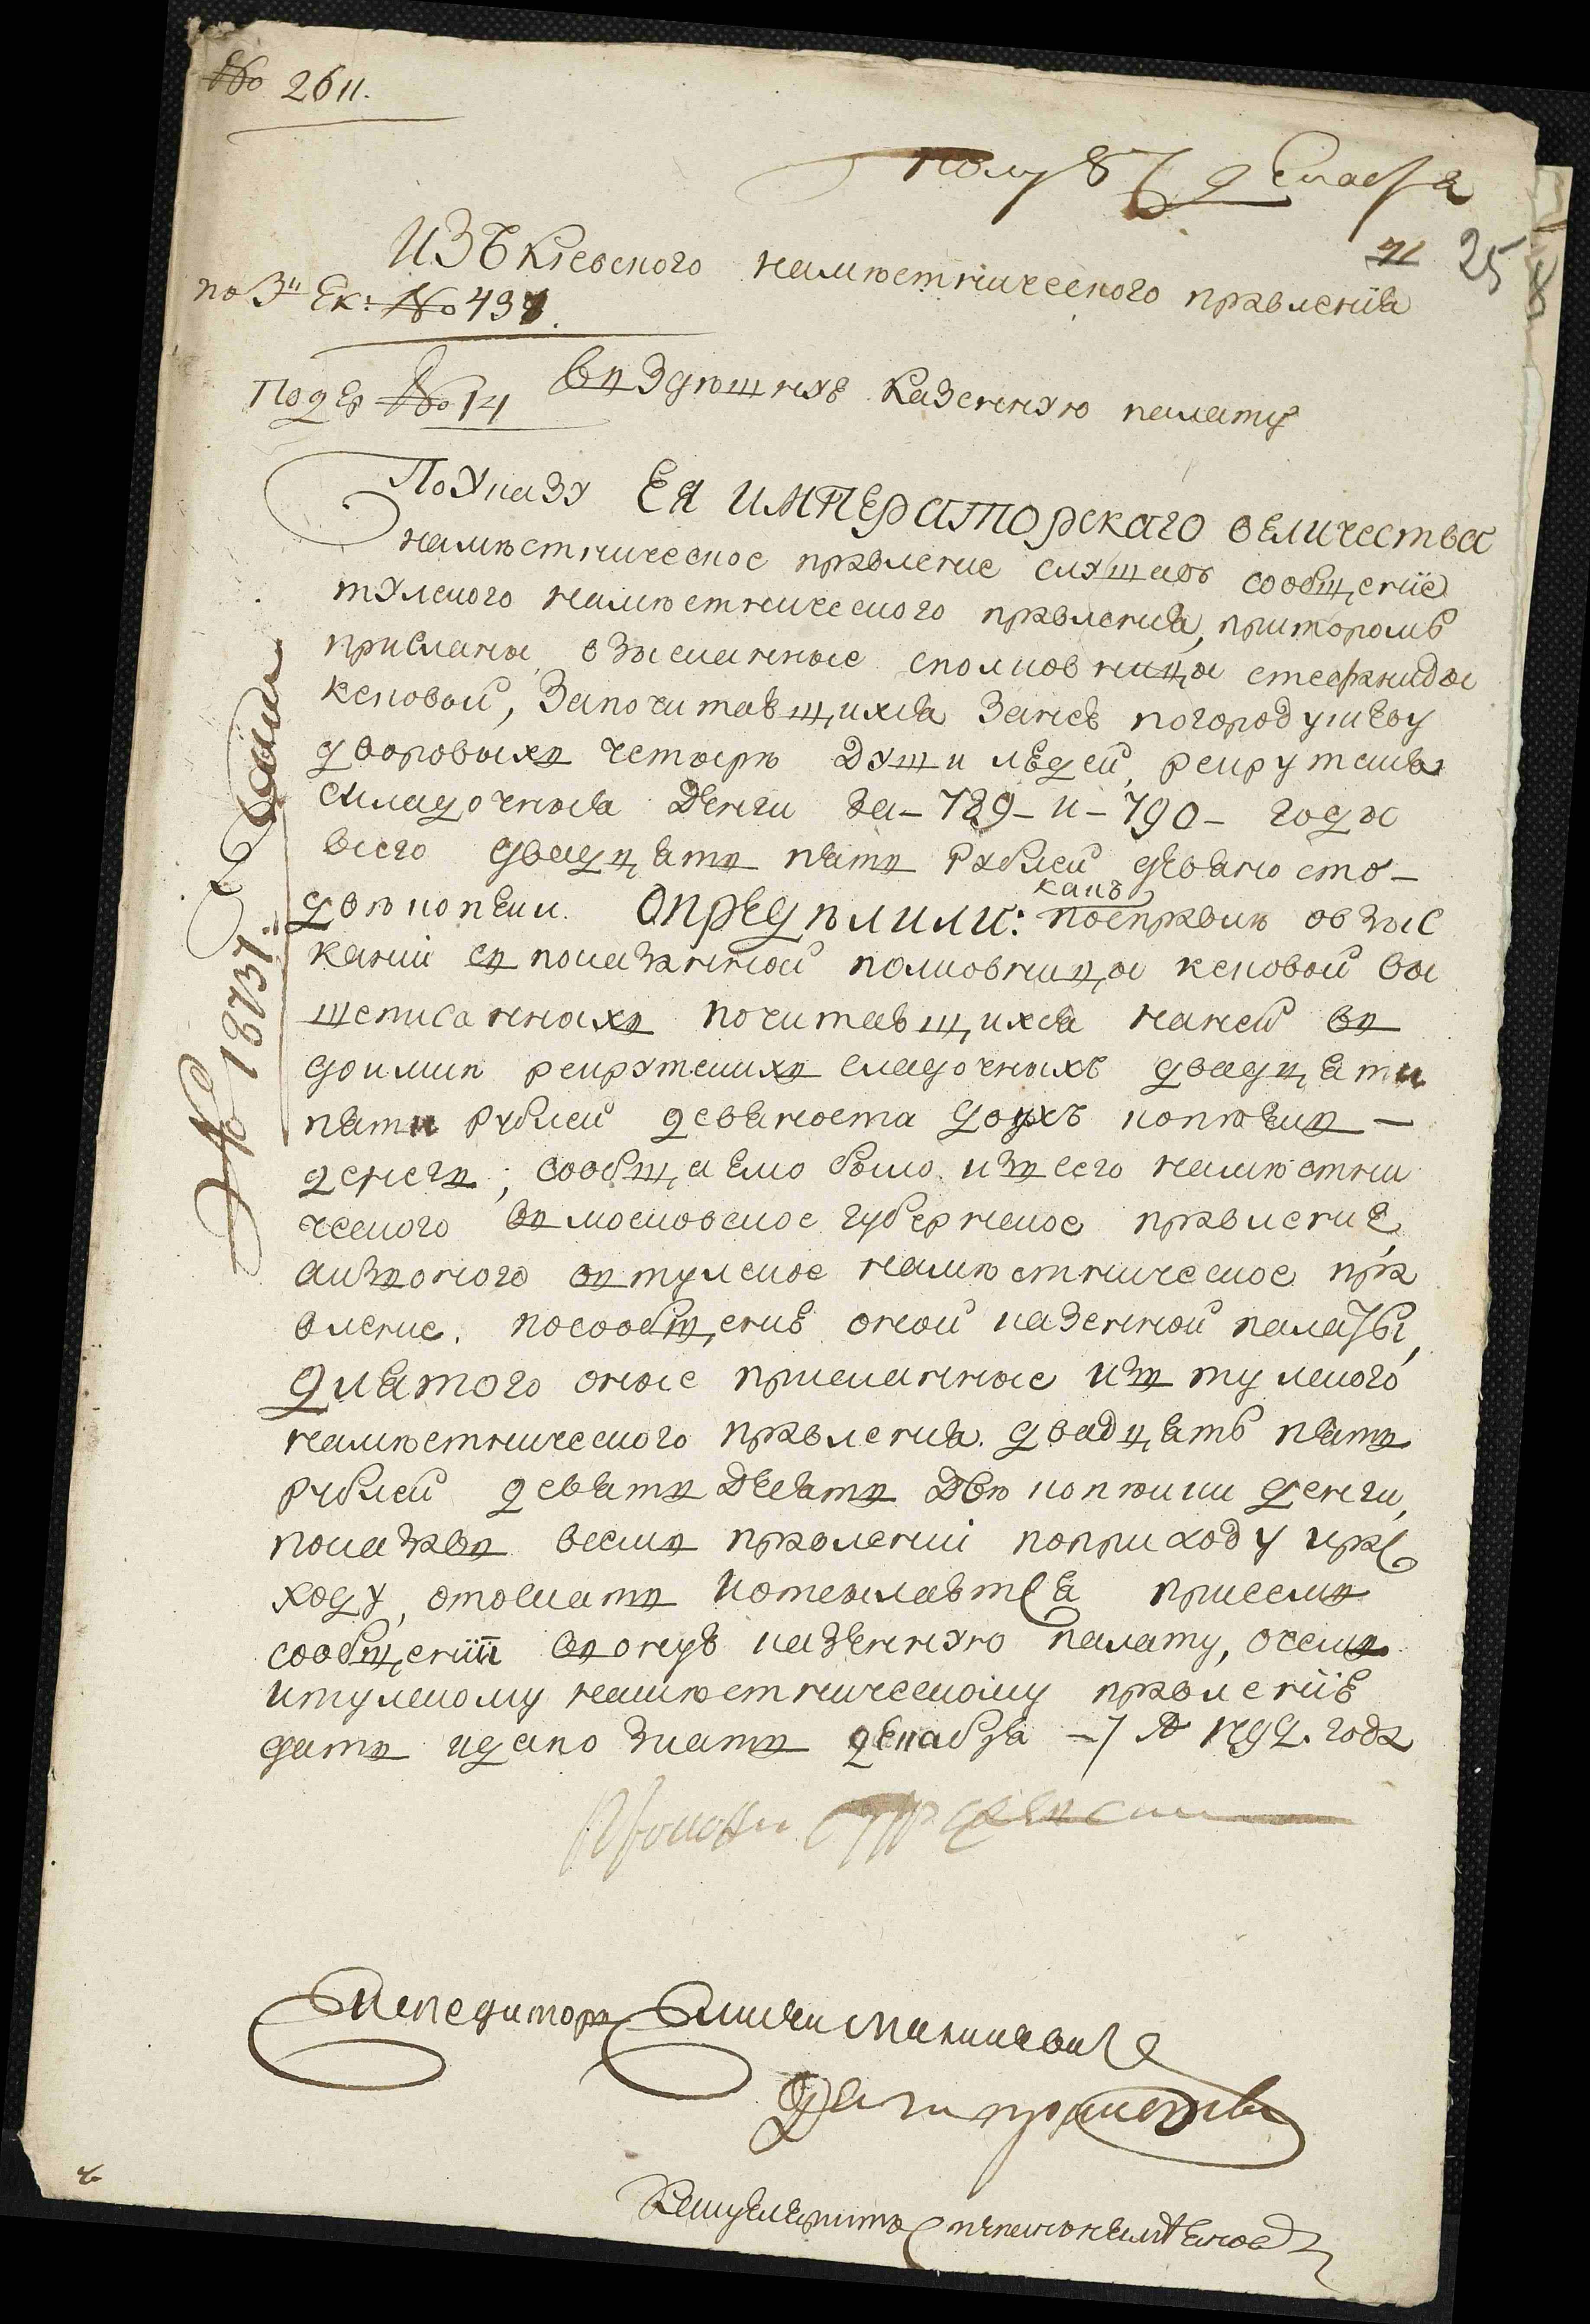 № 2611.
получ 9 декабря
41 25
Изъ Киевского наместнического правления
по 3й Ек: № 439.
взднешнюю казенную палату
Подер № 14
Поуказу ЕЯ ИМПЕРАТОРСКАГО ВЕЛИЧЕСТВА
наместническое правление слушавъ сообщение
тулского наместнического правления, прикоторомъ
присланы взысканные сполковницы стефаниды
кековой, започитавшихся занею погородукиеву
дворовыхъ четыре души людей, рекрутския
складочныя денги за – 789 – и – 790 – годы
всего двадцать пять рублей девяносто –
две копеики. Определили: какъ
поесправке овзыс
кании съ показанной полковницы кековой вы
шеписанныхъ почитавшихся наней въ
доимки рекрутскихъ складочныхъ двадцати
пяти рублей девяноста двухъ копеикъ –
денегъ, сообщаемо было изъ сего наместни
ческого въ московское губернское правление,
аизъ оного въ тулское наместническое пра
вление, посообщению оной казенной палаты,
длятого оные присланные изъ тулского
наместнического правления двадцать пять
рублей девять десять две копеики денги,
показавъ всемъ правлении поприходу ирас
ходу, отослать иотсылаются присемъ
сообщении въ оную казенную палату, очемъ
итулскому наместническому правлению
дать идано знать декабря – 7 д 1792. года
№ 18731:
Экспедиторъ
Канцеляристъ